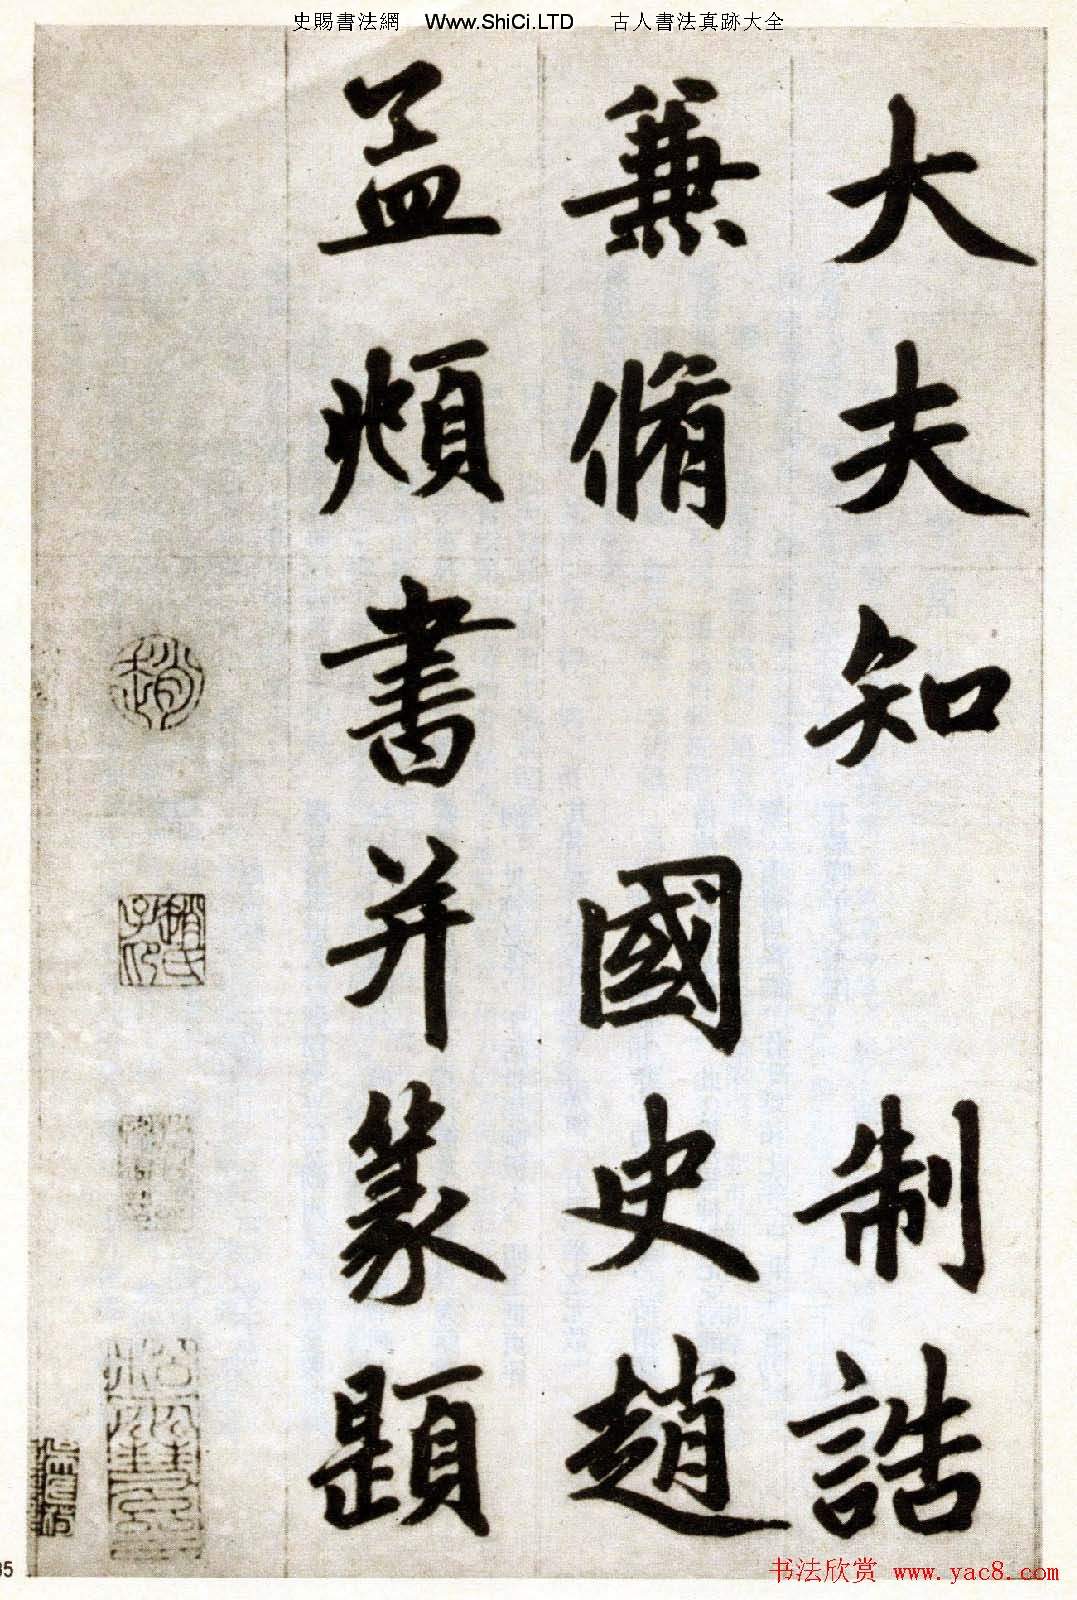 史賜書法網 Www.ShiCi.LTD 古人書法真跡大全
大夫知 制誥
兼脩 國史趙
孟頫書并篆題
趙
趙氏子印
35
书法欣赏 www.yac8.com